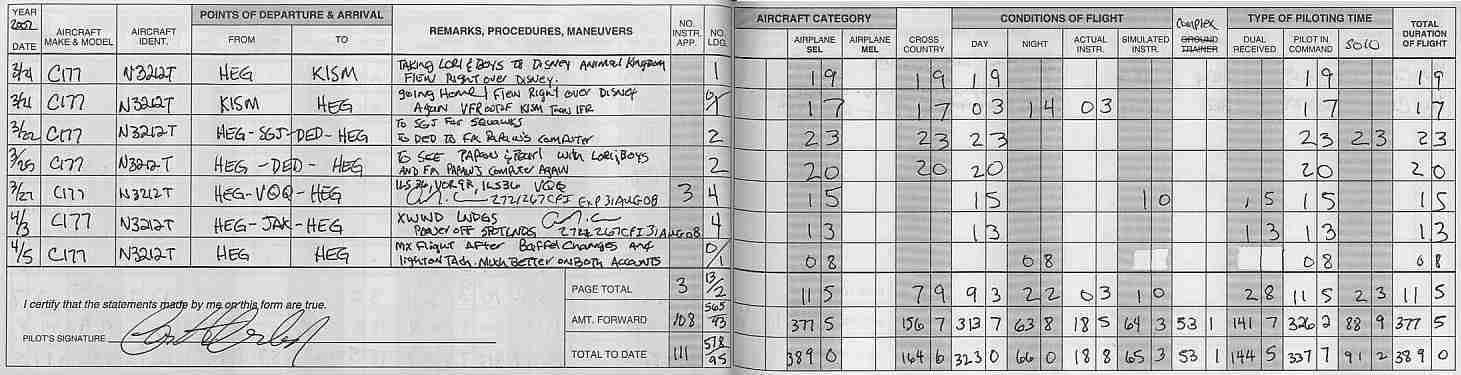 YEAR 2007 POINTS OF DEPARTURE & ARRIVAL AIRCRAFT CATEGORY CONDITIONS OF FLIGHT Complex TYPE OF PILOTING TIME
DATE AIRCRAFT MAKE & MODEL AIRCRAFT IDENT. FROM TO REMARKS, PROCEDURES, MANEUVERS NO. INSTR. APP. NO. LDG. AIRPLANE SEL AIRPLANE MEL CROSS COUNTRY DAY NIGHT ACTUAL INSTR. SIMULATED INSTR. GROUND TRAINER DUAL RECEIVED PILOT IN COMMAND SOLO TOTAL DURATION OF FLIGHT
3/21 C177 N3212T HEG KISM TAKING LORI & BOYS TO DISNEY ANIMAL KINGDOM 1 1 9 1 9 1 9 1 9 1 9
FLEW RIGHT OVER DISNEY.
3/21 C177 N3212T KISM HEG going Home! Flew Right over Disney 0/1 1 7 1 7 0 3 1 4 0 3 1 7 1 7
Again VFR out of KISM Then IFR
3/22 C177 N3212T HEG-SGJ-DED-HEG To SGJ For Squawks 2 2 3 2 3 2 3 2 3 2 3 2 3
To DED To Fix PAPAW'S COMPUTER
3/25 C177 N3212T HEG - DED - HEG To SEE PAPAW & Pearl with Lori, Boys 2 2 0 2 0 2 0 2 0 2 0
AND Fix PAPAW'S COMPUTER AGAIN
3/27 C177 N3212T HEG-VQQ-HEG ILS36, VOR9R, ILS36 VQQ 3 4 1 5 1 5 1 0 1 5 1 5 1 5
2721267CFI Exp 31AUG08
4/3 C177 N3212T HEG-JAX-HEG XWND LNDGS 4 1 3 1 3 1 3 1 3 1 3
Power OFF SPOT LNDS 2721267CFI 31AUG08
4/5 C177 N3212T HEG HEG MX Flight After Baffel Changes and 0/1 0 8 0 8 0 8 0 8
light on Tach. Much Better on Both Accounts
PAGE TOTAL 3 13/2 11 5 7 9 9 3 2 2 0 3 1 0 2 8 11 5 2 3 11 5
I certify that the statements made by me on this form are true.
AMT. FORWARD 108 565/93 377 5 156 7 313 7 63 8 18 5 64 3 53 1 141 7 326 2 88 9 377 5
PILOT'S SIGNATURE
TOTAL TO DATE 111 578/95 389 0 164 6 323 0 66 0 18 8 65 3 53 1 144 5 337 7 91 2 389 0